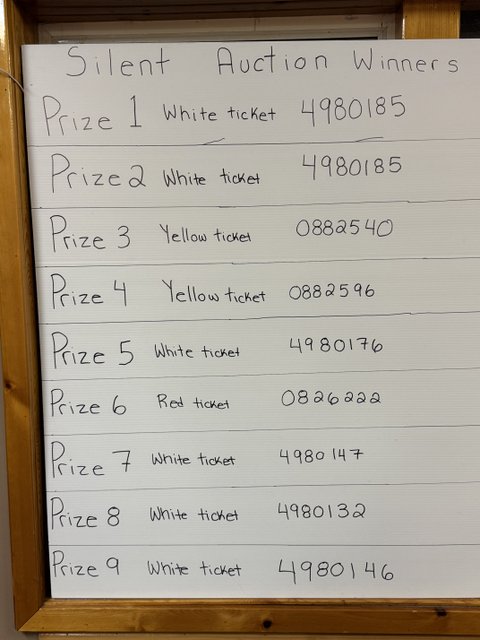 Silent Auction Winners
Prize 1 White ticket 4980185
Prize 2 White ticket 4980185
Prize 3 Yellow ticket 0882540
Prize 4 Yellow ticket 0882596
Prize 5 White ticket 4980176
Prize 6 Red ticket 0826222
Prize 7 White ticket 4980147
Prize 8 White ticket 4980132
Prize 9 White ticket 4980146